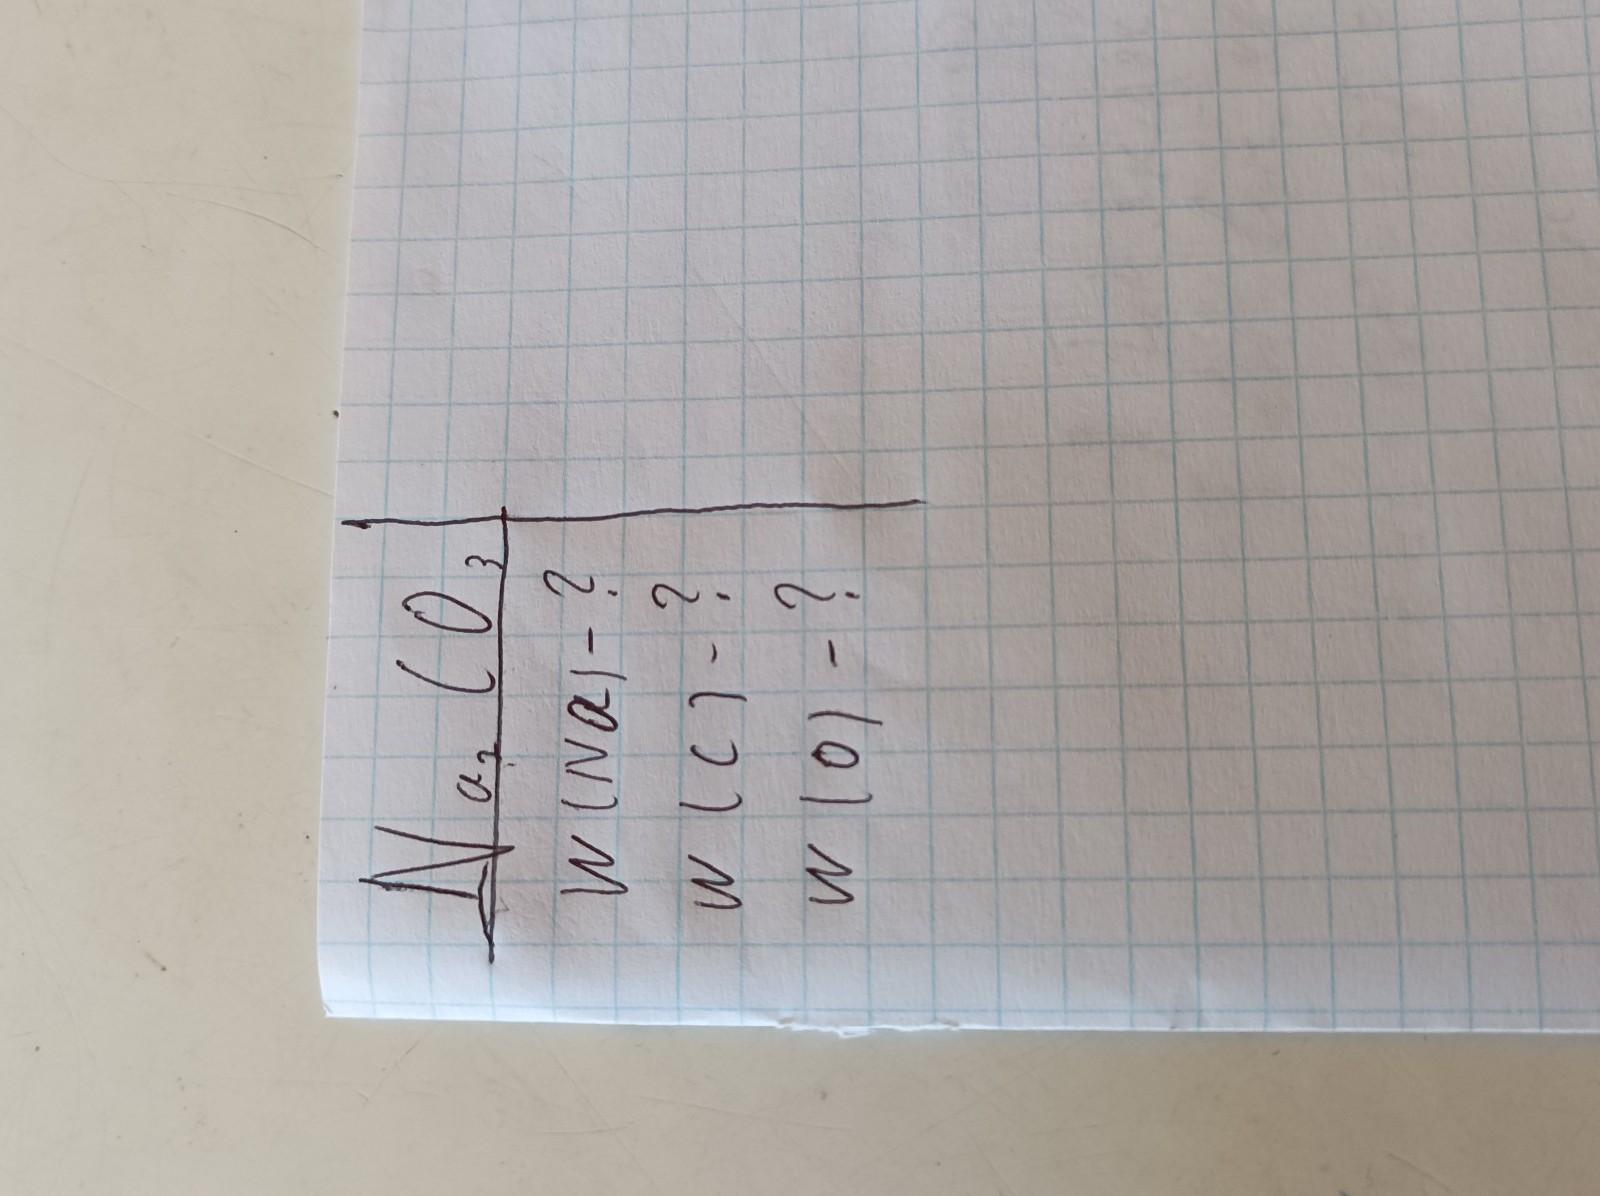 Na₂CO₃
W(Na) - ?
W(C) - ?
W(O) - ?